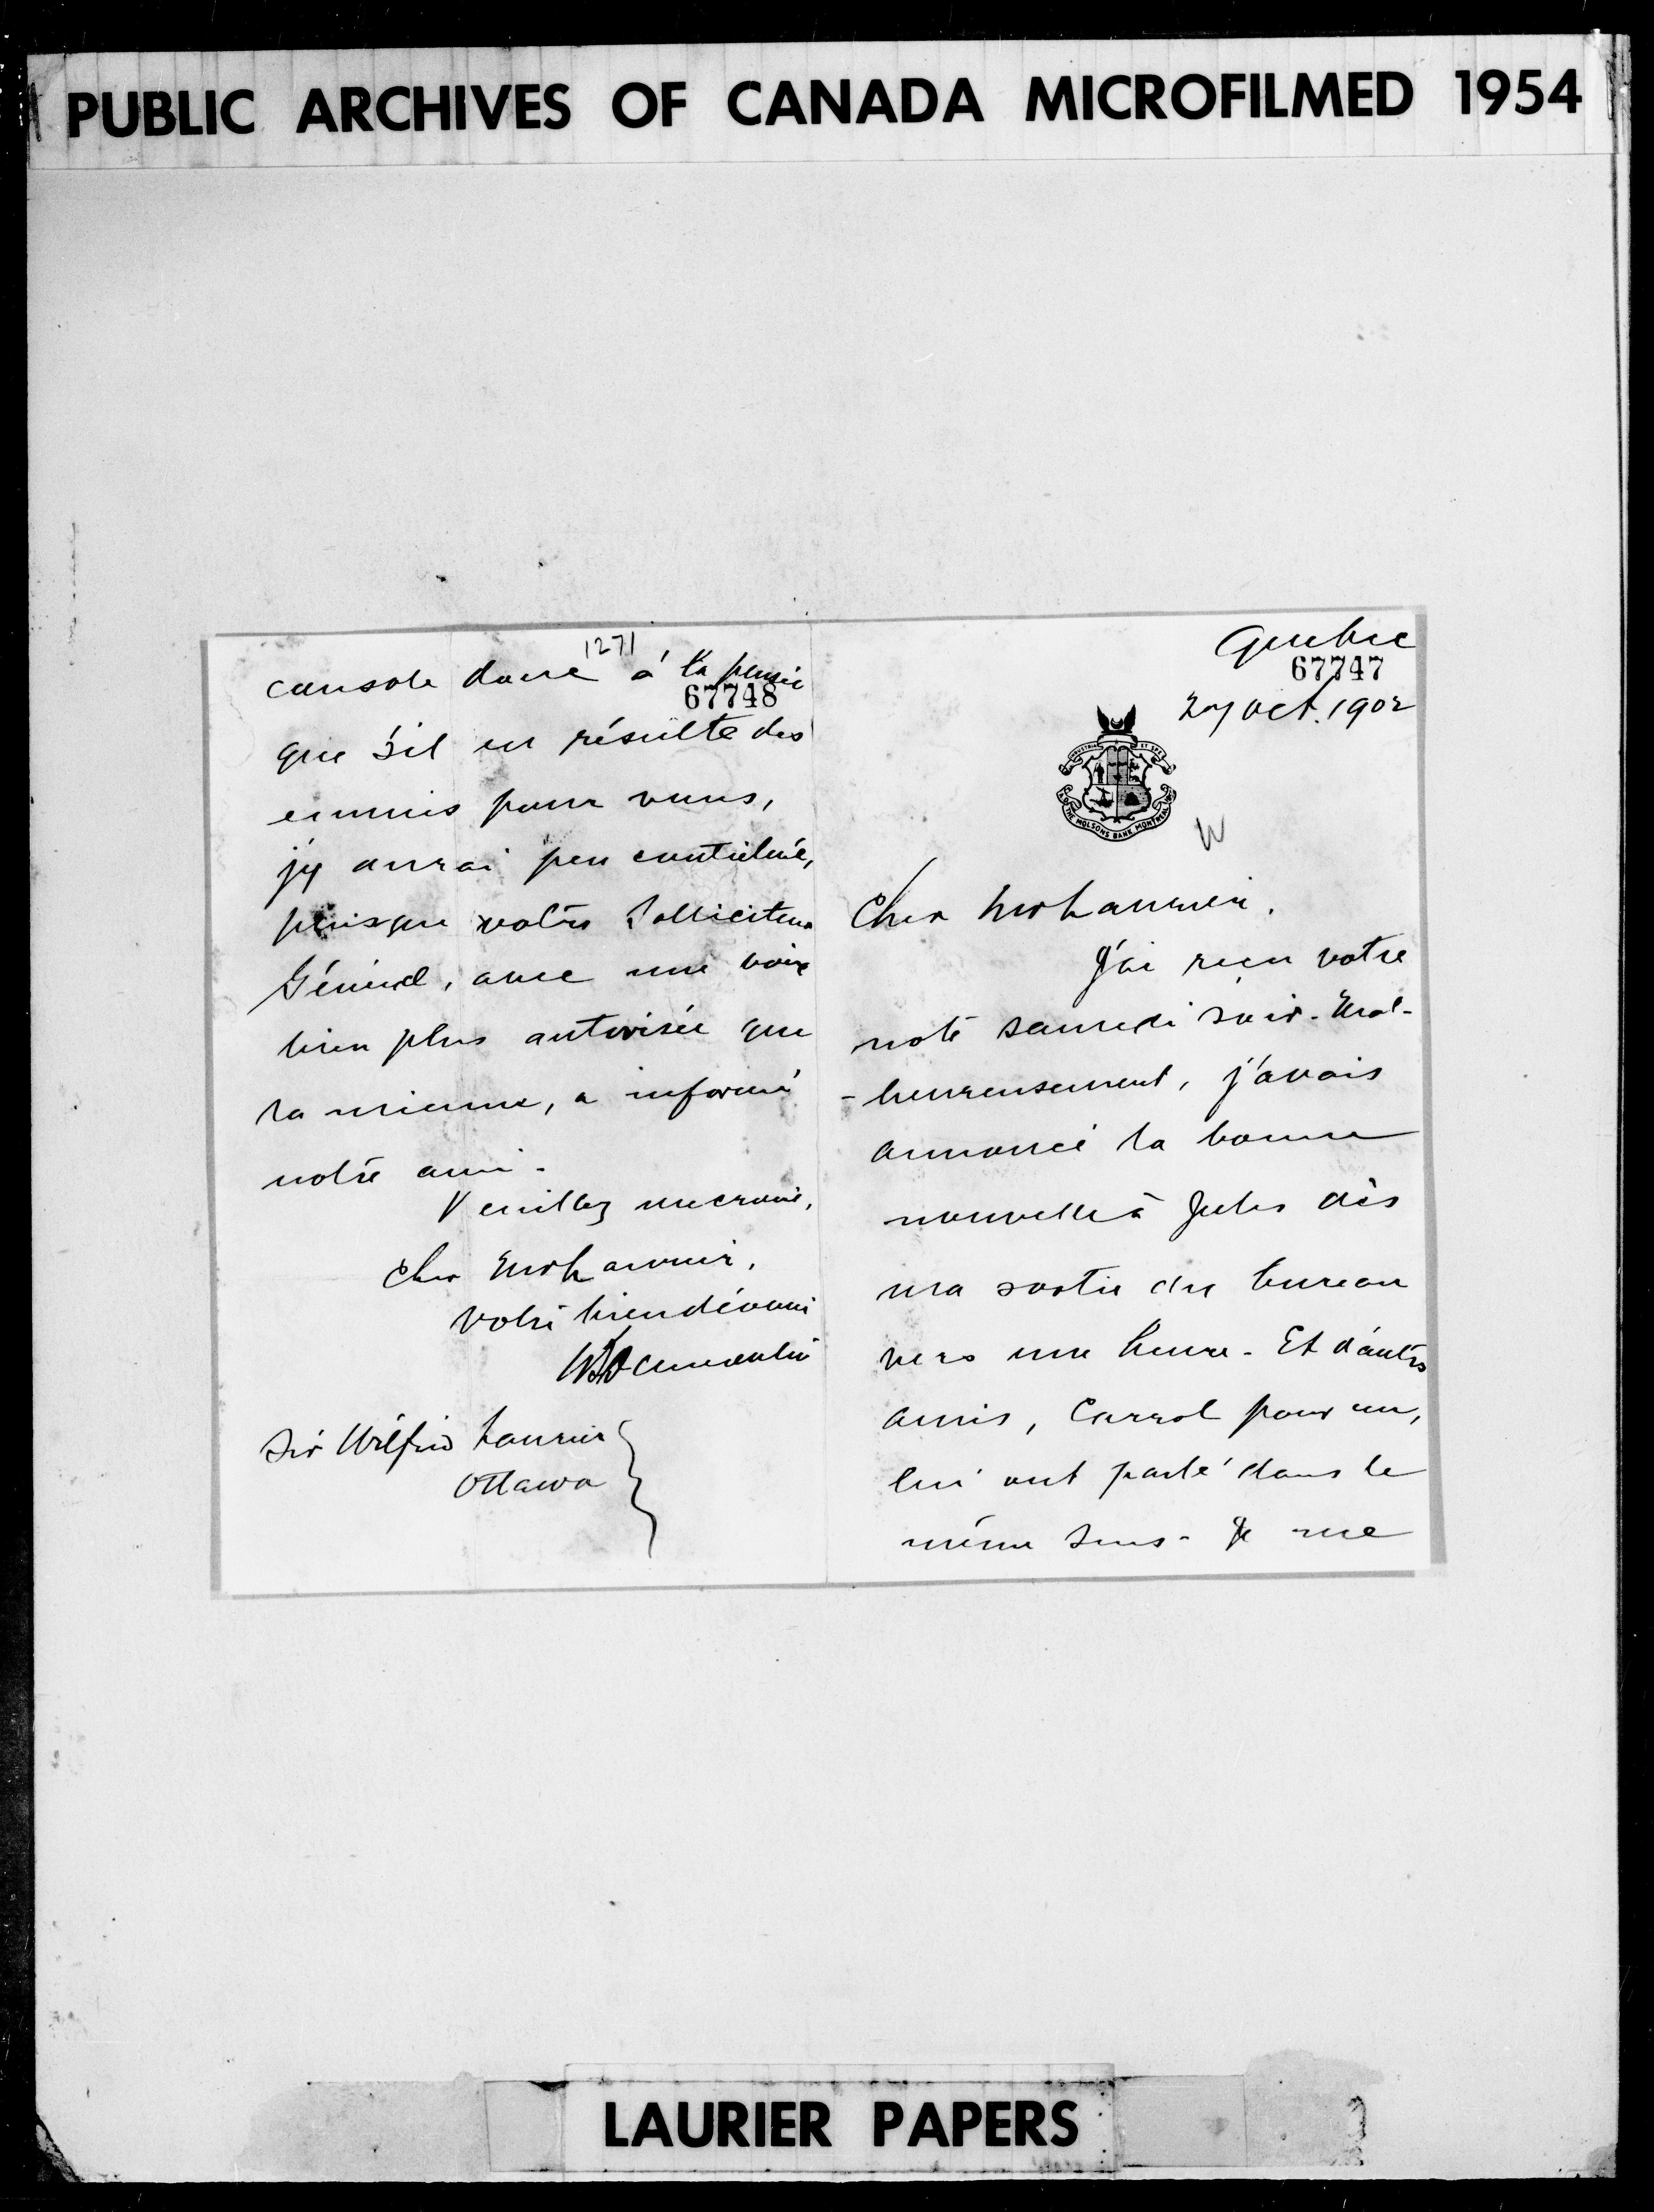 PUBLIC ARCHIVES OF CANADA MICROFILMED 1954
Quebec
67747
27 Oct. 1902
INDUSTRIA ET SPE
THE MOLSONS BANK MONTREAL
W
Cher Mr Laurier,
J'ai reçu votre
note samedi soir. Mal-
-heureusement, j'avais
annoncé la bonne
nouvelle à Jules dès
ma sortie du bureau
vers une heure. Et d'autres
amis, Carrol pour un,
lui ont parlé dans le
même sens. Je me
1271
console donc à la pensée
67748
que s'il en résulte des
ennuis pour vous,
j'y aurai peu contribué,
puisque votre Solliciteur
Général, avec une voix
bien plus autorisée que
la mienne, a informé
notre ami.
Veuillez me croire,
Cher Mr Laurier,
Votre bien dévoué
Sir Wilfrid Laurier
Ottawa
LAURIER PAPERS